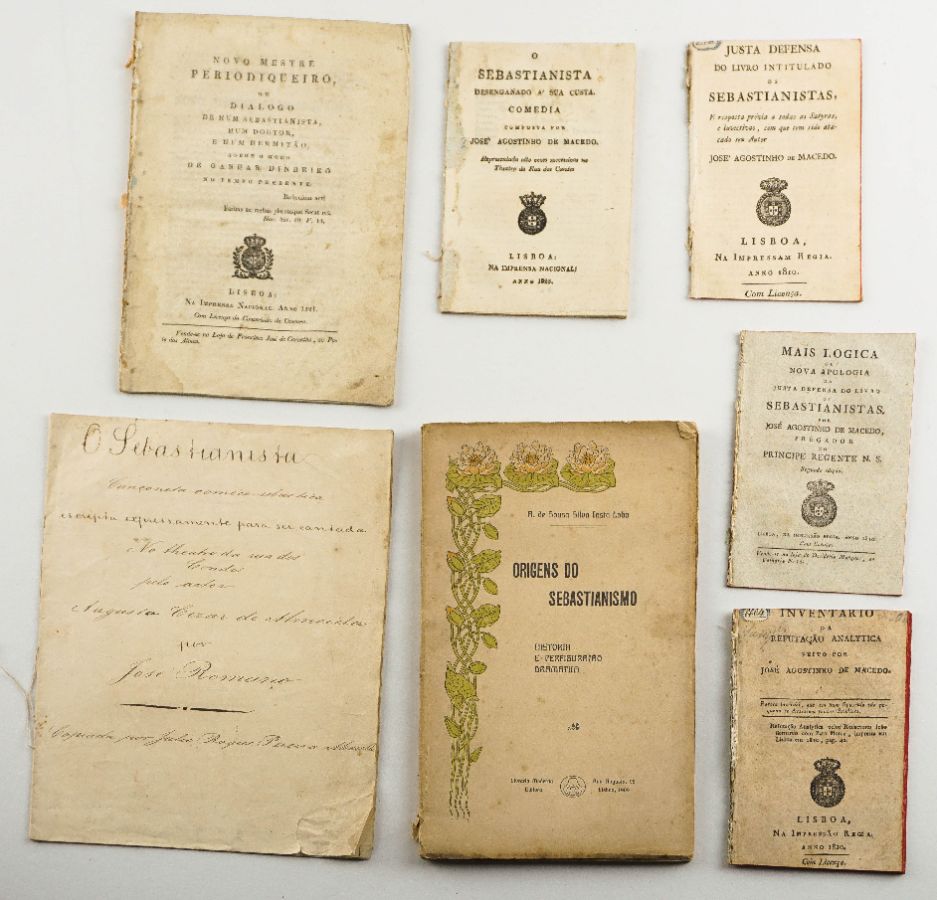 NOVO MESTRE
PERIODIQUEIRO,
OU
DIALOGO
DE HUM SEBASTIANISTA,
HUM DOUTOR,
E HUM HERMITÃO,
SOBRE O MODO
DE GANHAR DINHEIRO
NO TEMPO PRESENTE.
LISBOA:
NA IMPRENSA NACIONAL. ANNO
Com Licença da Commissão de Censura.
Vende-se na Loja de Francisco José de Carvalho, ao
O
SEBASTIANISTA
DESENGANADO A' SUA CUSTA.
COMEDIA
COMPOSTA POR
JOSE' AGOSTINHO DE MACEDO.
Representada oito vezes successivas no
Theatro da Rua dos Condes
LISBOA:
NA IMPRENSA NACIONAL;
ANNO
JUSTA DEFENSA
DO LIVRO INTITULADO
OS
SEBASTIANISTAS,
E resposta prévia a todas as Satyras,
e invectivas, com que tem sido ata-
cado seu Autor
JOSE' AGOSTINHO DE MACEDO.
LISBOA,
NA IMPRESSAM REGIA.
ANNO 1810.
Com Licença.
MAIS LOGICA
OU
NOVA APOLOGIA
DA
JUSTA DEFENSA DO LIVRO
OS
SEBASTIANISTAS,
POR
JOSÉ AGOSTINHO DE MACEDO,
PREGADOR
DO
PRINCIPE REGENTE N. S.
Segunda edição.
Com Licença.
O Sebastianista
Cançoneta comica
escripta expressamente para ser cantada
No theatro da rua dos
Condes
pelo actor
Augusto Cezar de
por
José Romano
Copiada por Julio
A. de Sousa Silva Costa Lobo
ORIGENS DO
SEBASTIANISMO
HISTORIA
E PERFIGURAÇÃO
DRAMATICA
Livraria Moderna
Editora
Rua Augusta, 95
Lisboa,
INVENTARIO
DA
REFUTAÇÃO ANALYTICA
FEITO POR
JOSÉ AGOSTINHO DE MACEDO.
LISBOA,
NA IMPRESSÃO REGIA.
ANNO 1810.
Com Licença.